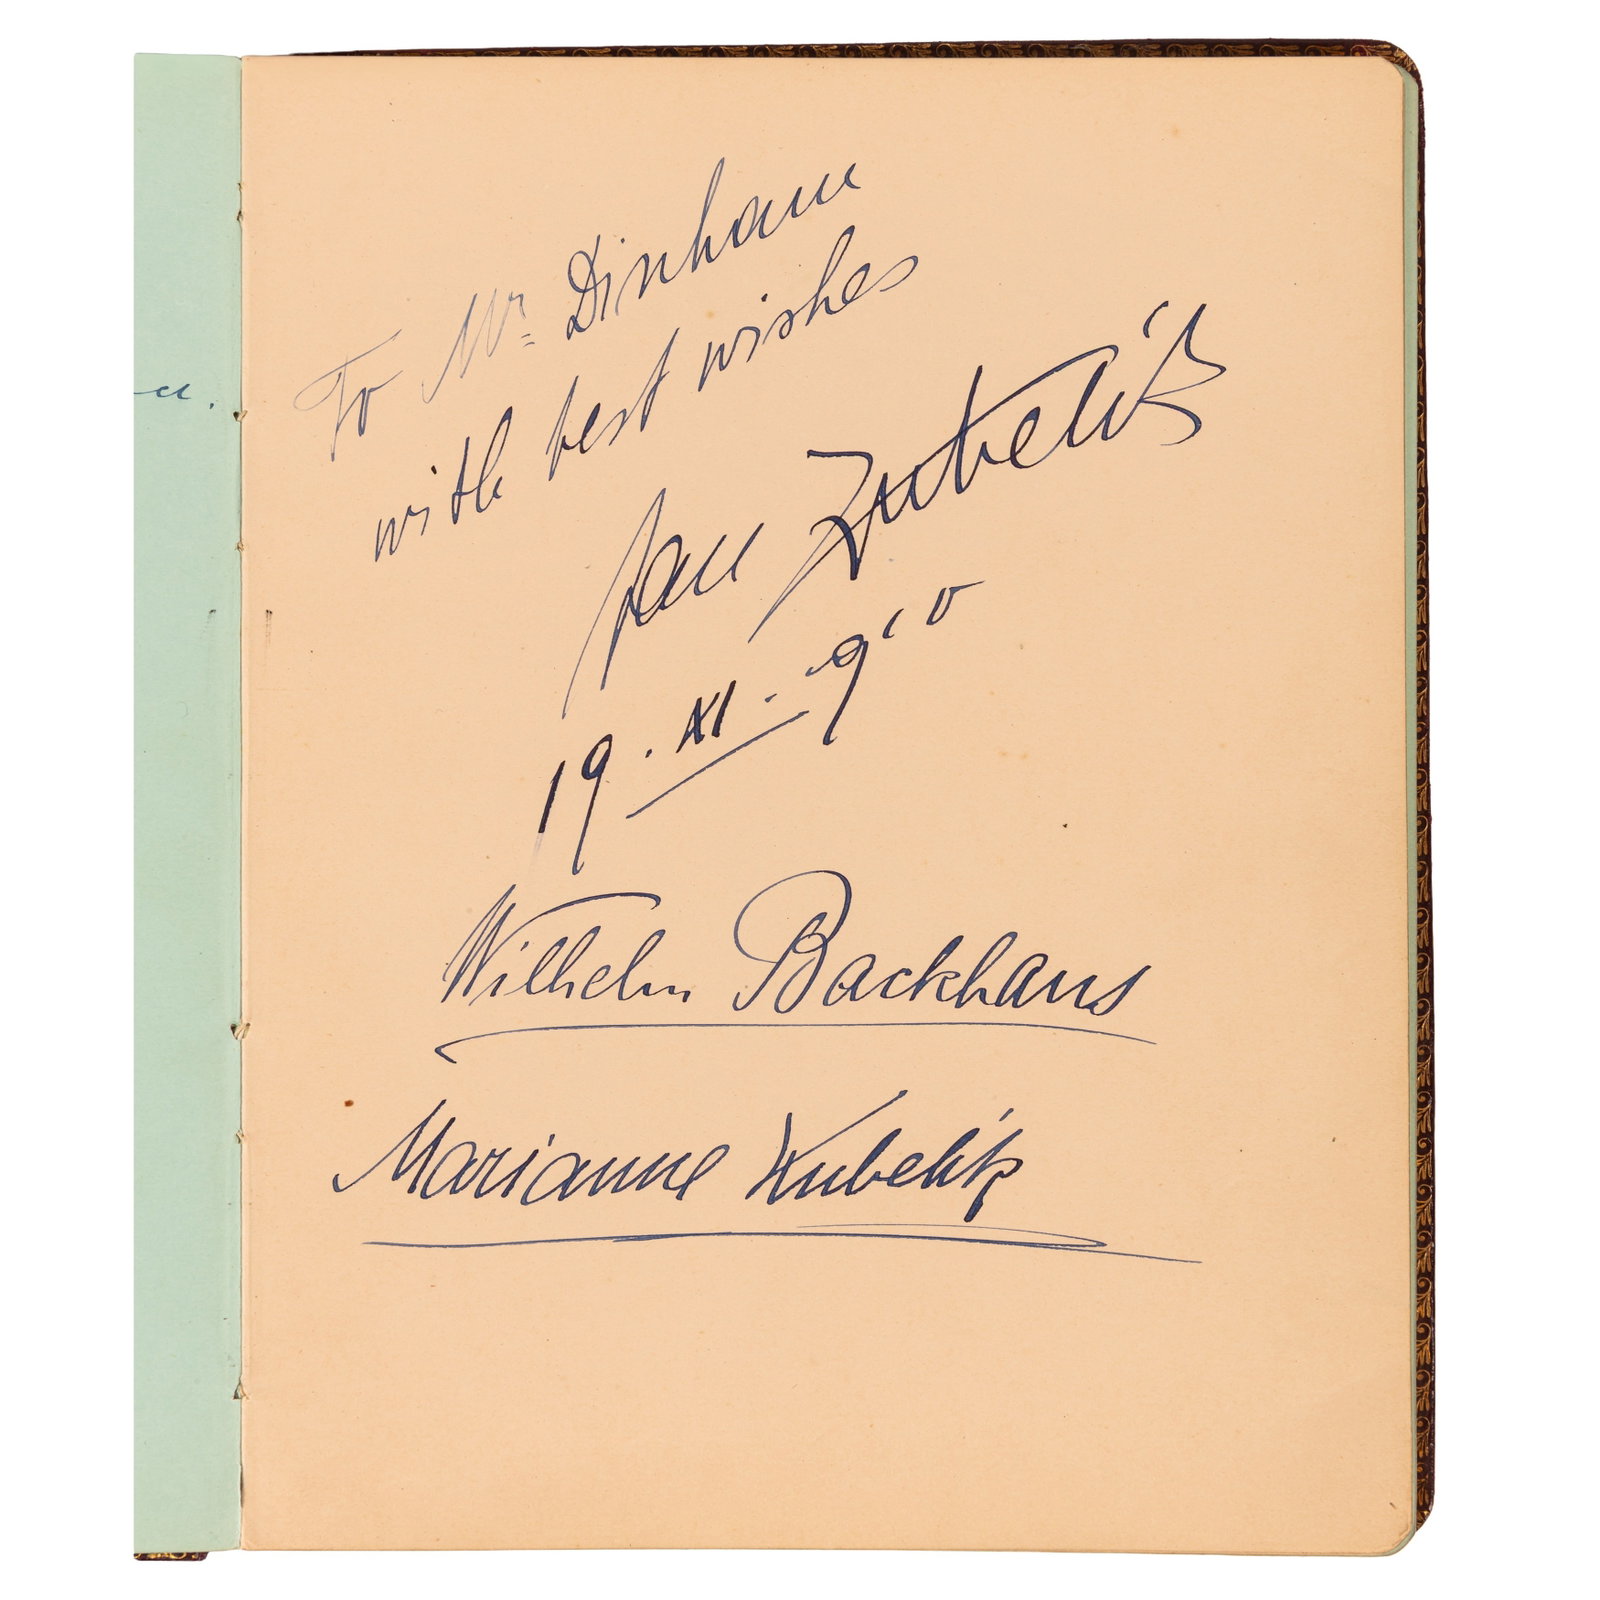 To Mr. Dinham
with best wishes
Jan Kubelík
19. XI. 910
Wilhelm Backhaus
Marianne Kubelík